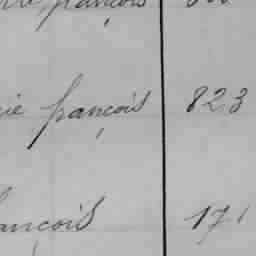 françois
ie françois 823
ançois 171